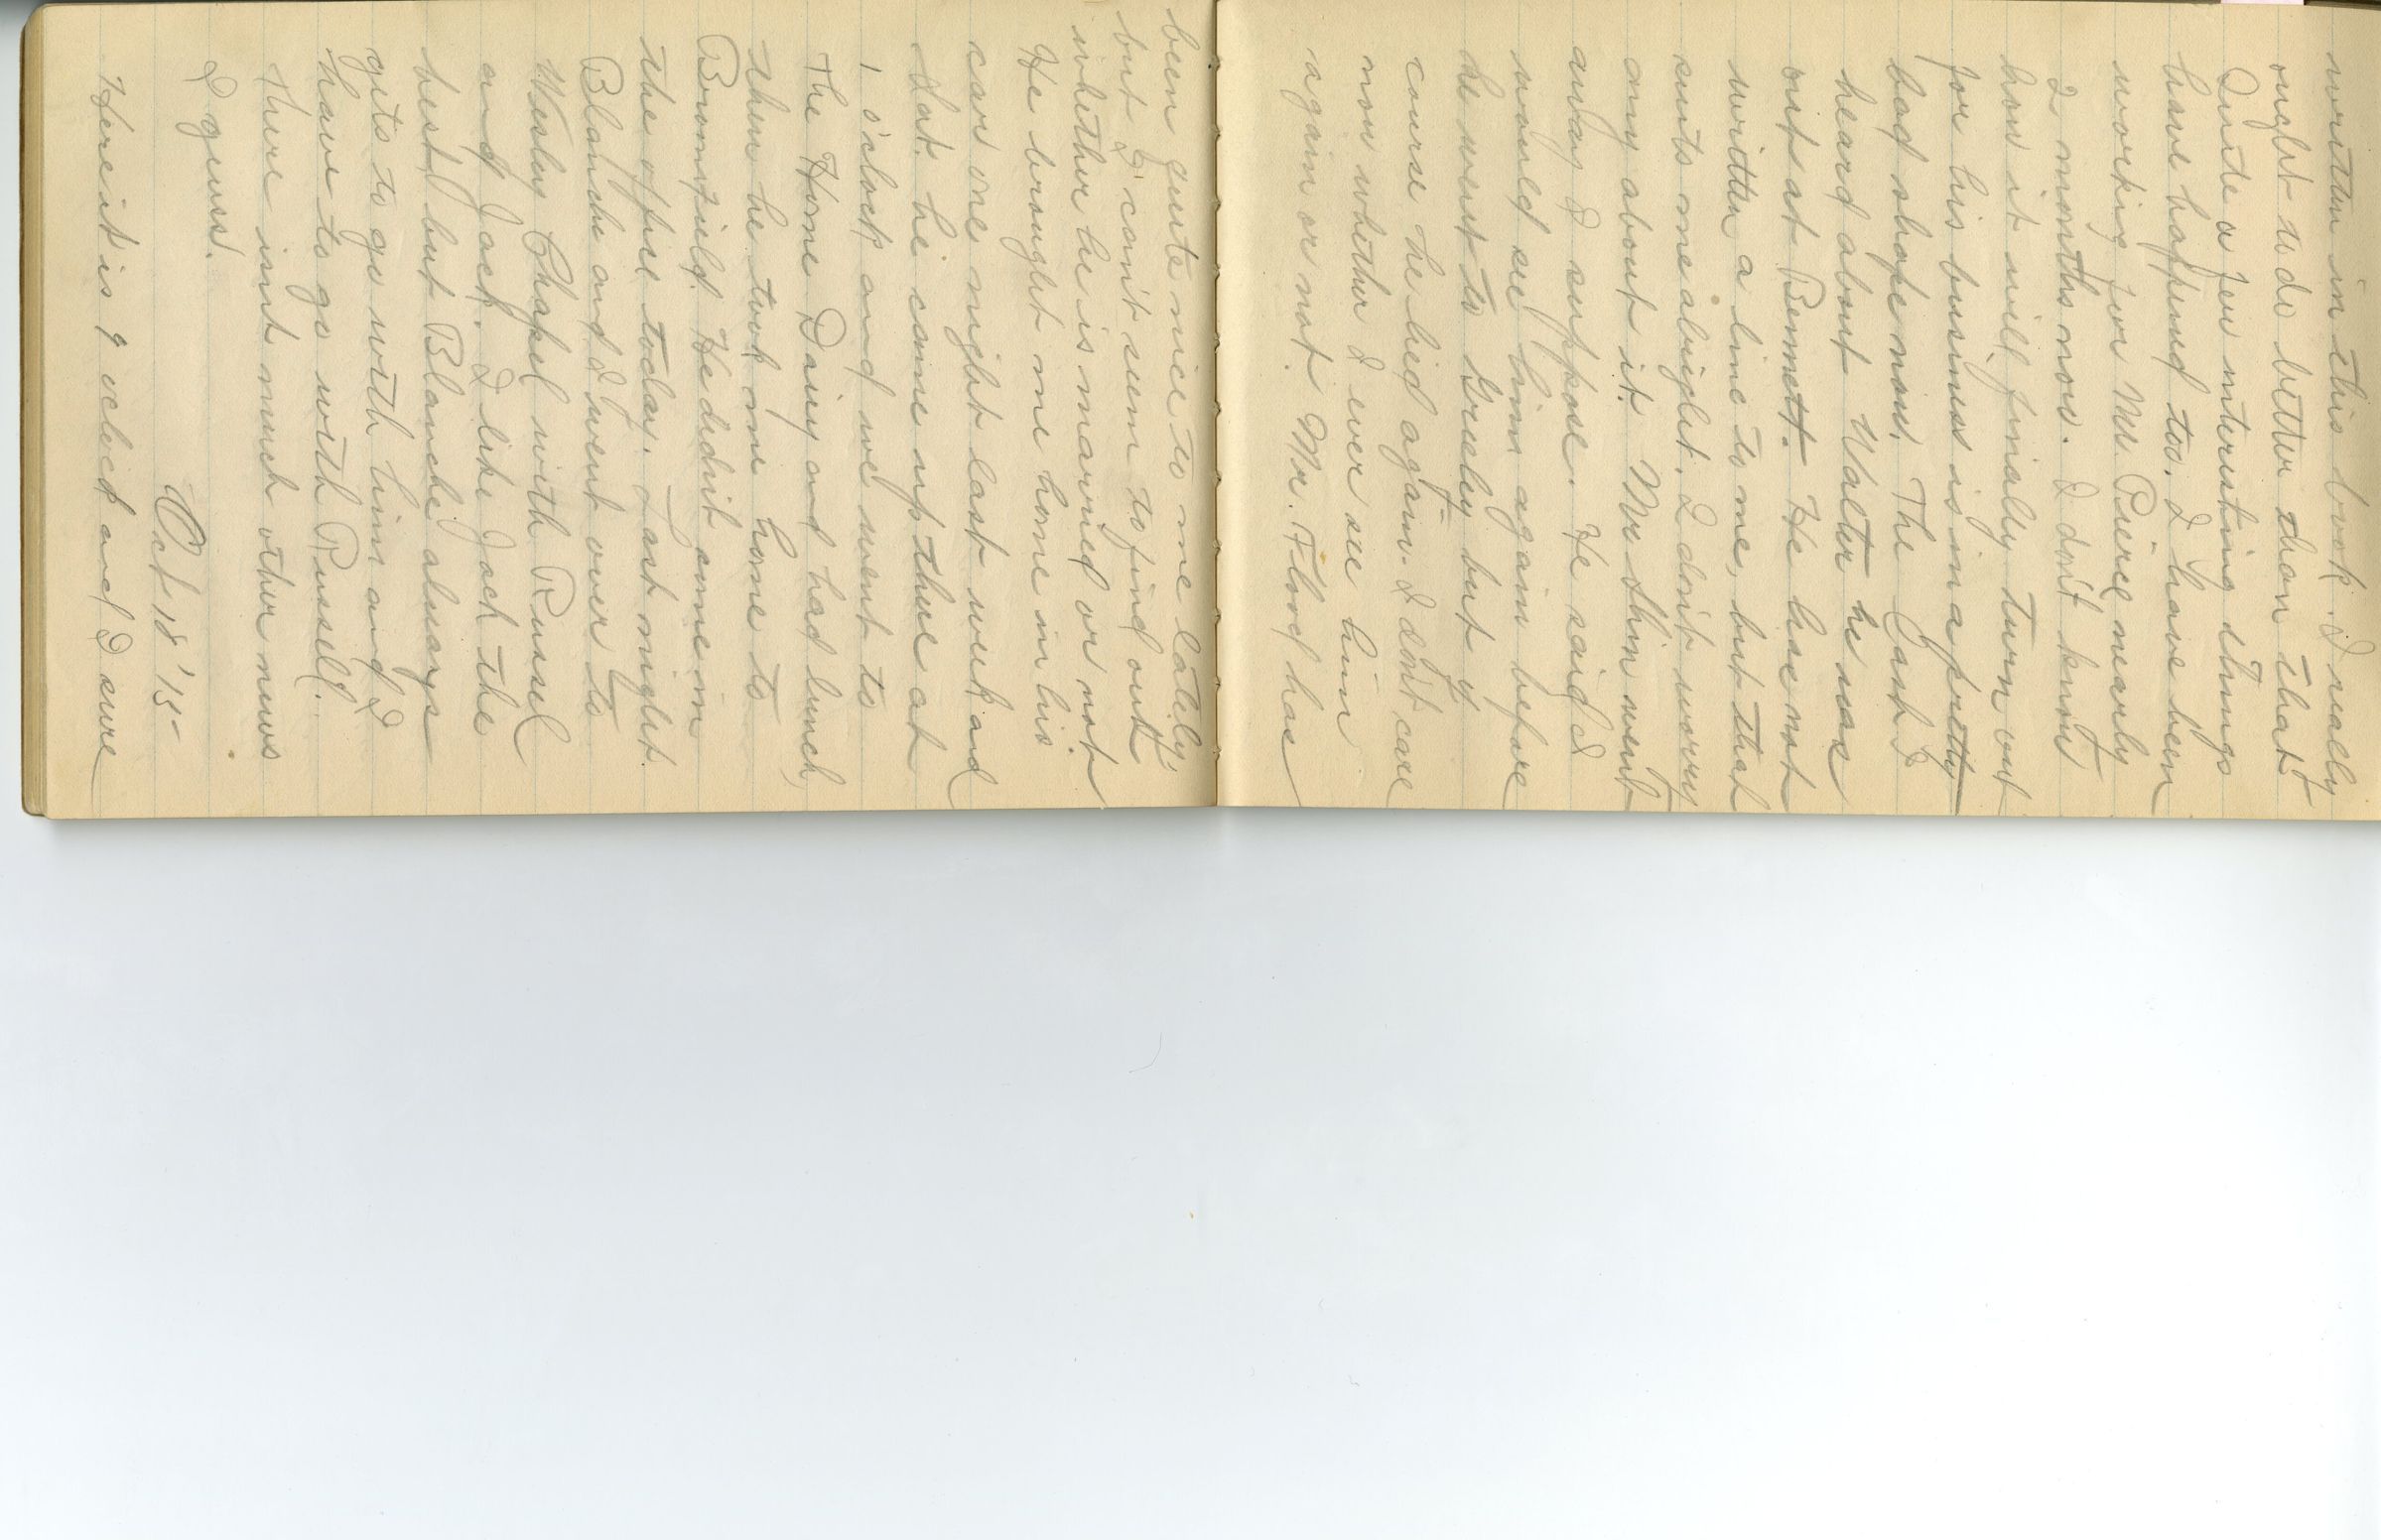 written in this book. I really
ought to do better than that
Quite a few interesting things
have happened too. I have been
working for Mr. Pierce nearly
2 months now. I don't know
how it will finally turn out
for his business is in a pretty
bad shape now. The last I
heard about Walter he was
out at Bennett. He has not
written a line to me, but that
suits me alright. I don't worry
any about it. Mr. Shin went
away I suppose. He said I
would see him again before
he went to Greeley but of
course he lied again. I don't care
now whether I ever see him
again or not. Mr. Flood has
been quite nice to me lately,
but I can't seem to find out
whether he is married or not.
He brought me home in his
car one night last week and
Sat. he came up there at
1 o'clock and we went to
The Home Dairy and had lunch,
then he took me home to
Broomfield. He didn't come in
the office today. Last night
Blanche and I went over to
Wesley Chapel with Russel
and Jack. I like Jack the
best, but Blanche always
gets to go with him and I
have to go with Russel.
There isnt much other news
I guess.
Oct 18 '15-
Here it is 9 oclock and I sure